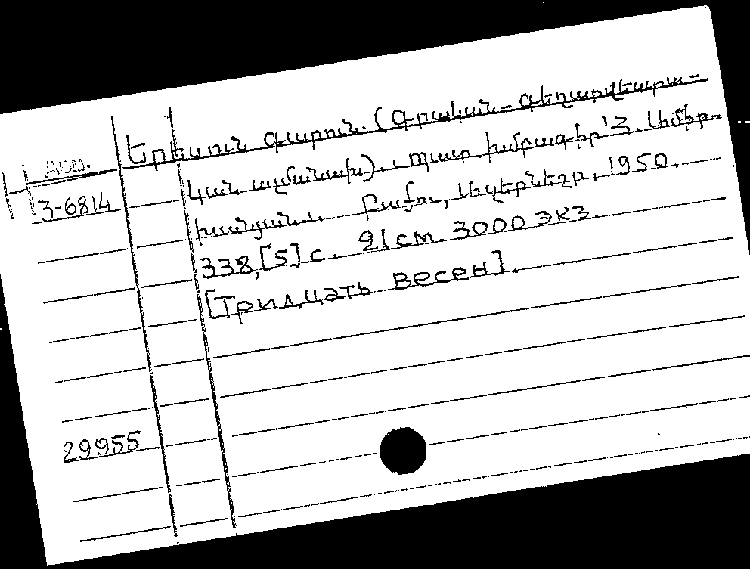 Арм.
3-6814
Երեսուն գարուն (Գրական-գեղարվեստա-
կան ալմանախ). Պատ. խմբագիր՝ Ֆ.
խանյան. Բաքու, Ազերնեշր, 1950.
338,[5] с. 21 см. 3000 экз.
[Тридцать весен].
29955